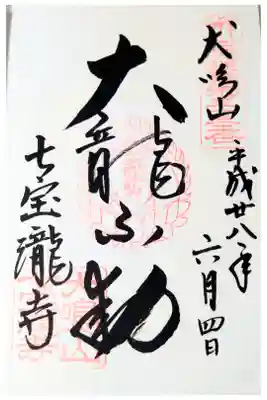 犬鳴山
平成廿八年
六月四日
大龍不動
七宝瀧寺